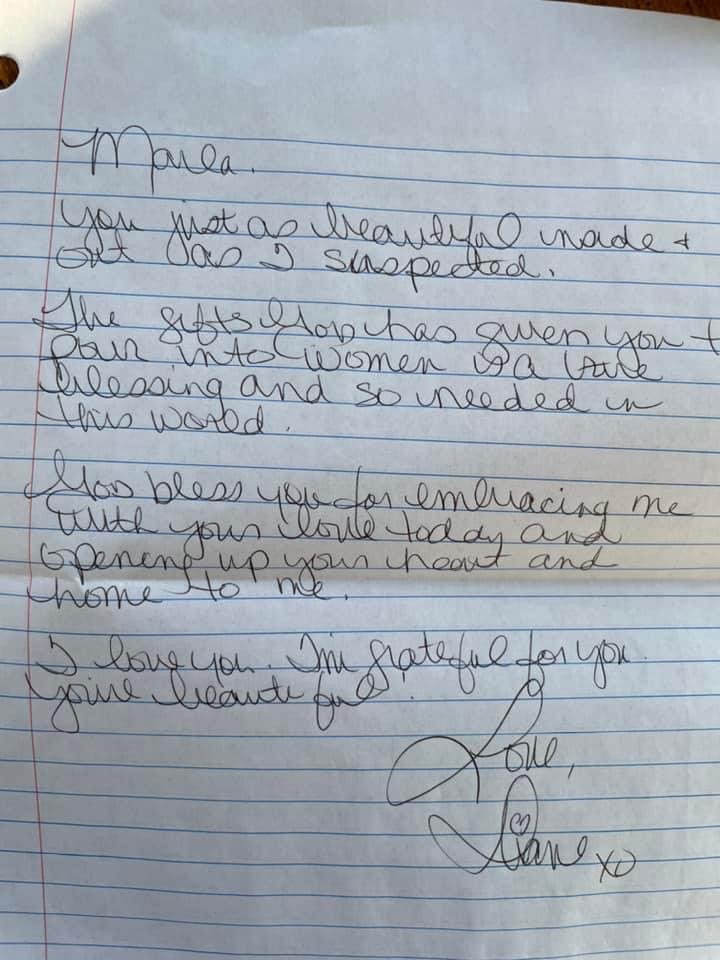 Marla.
You just as beautiful inside +
out as I suspected.
The gifts God has given you t
pour into women is a true
blessing and so needed in
this world.
God bless you for embracing me
with your love today and
opening up your heart and
home to me.
I love you. I'm grateful for you.
You're beautiful.
Love,
Diane xo